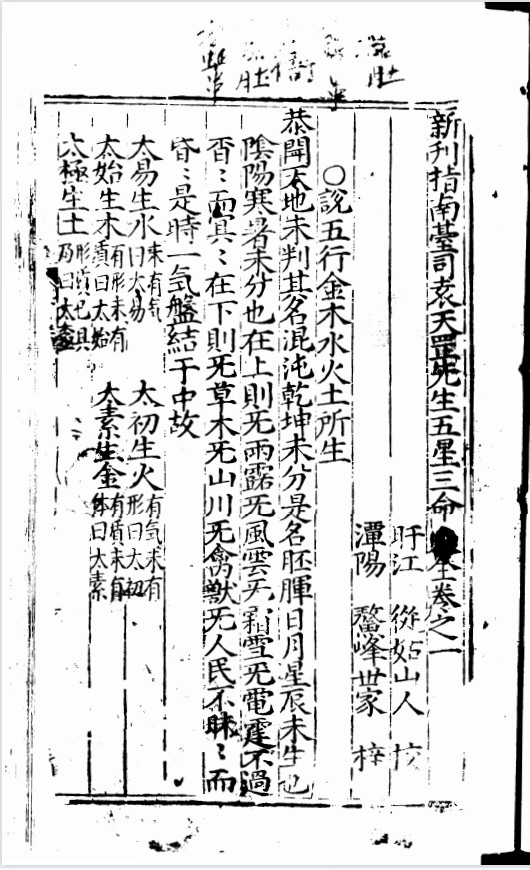 新刊指南臺司袁天罡先生五星三命大全卷之一
盱江 從姑山人 校
潭陽 鰲峰世家 梓
○說五行金木水火土所生
恭聞天地未判其名混沌乾坤未分是名胚腪日月星辰未生也
陰陽寒暑未分也在上則无雨露无風雲无霜雪无電霆不過
杳〻而冥〻在下則无草木无山川无禽獸无人民不昧〻而
昏〻是時一气盤結于中故
太易生水 未有气曰太易 太初生火 有气未有形曰太初
太始生木 有形未有質曰太始 太素生金 有質未有体曰太素
太極生土 形質已具乃曰太極
胚
胚